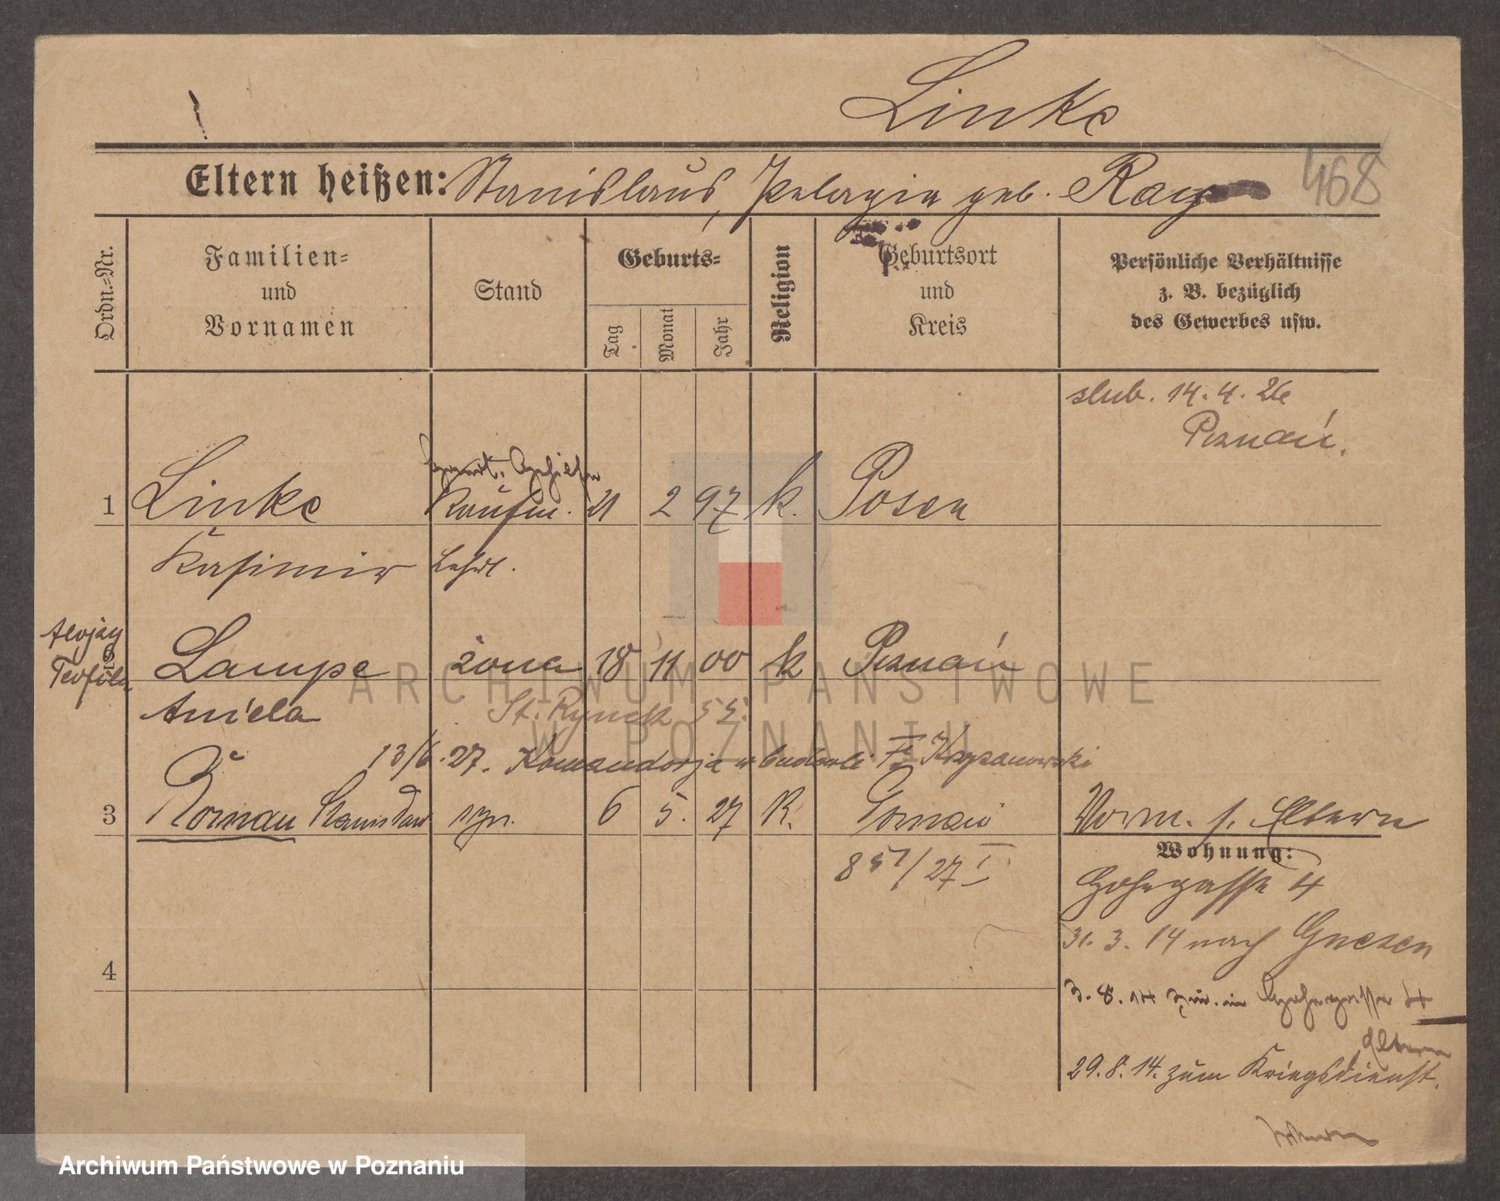 Linke
Eltern heißen: Stanislaus, Pelagia geb. Ray
468
Ordn.-Nr.
Familien- und Vornamen
Stand
Geburts-
Tag
Monat
Jahr
Religion
Geburtsort und Kreis
Persönliche Verhältnisse
z. B. bezüglich
des Gewerbes usw.
slub. 14. 4. 26
Poznań.
1 Linke Kaufm. 21 2 97 k. Posen
Kasimir Lehrl.
Alojzy
Teofila
Lampe żona 18 11 00 k Poznań
Aniela St. Rynek 55.
13/6. 27. Komandorja Krzyżanowski
3 Roman Stanisław syn. 6 5. 27 R. Poznań Vorm. s. Eltern
Wohnung:
857/27 I
31. 3. 14 nach Gnesen
4
3. 8. 14
Eltern
29. 8. 14. zum Kriegsdienst.
ARCHIWUM PAŃSTWOWE
W POZNANIU
Archiwum Państwowe w Poznaniu